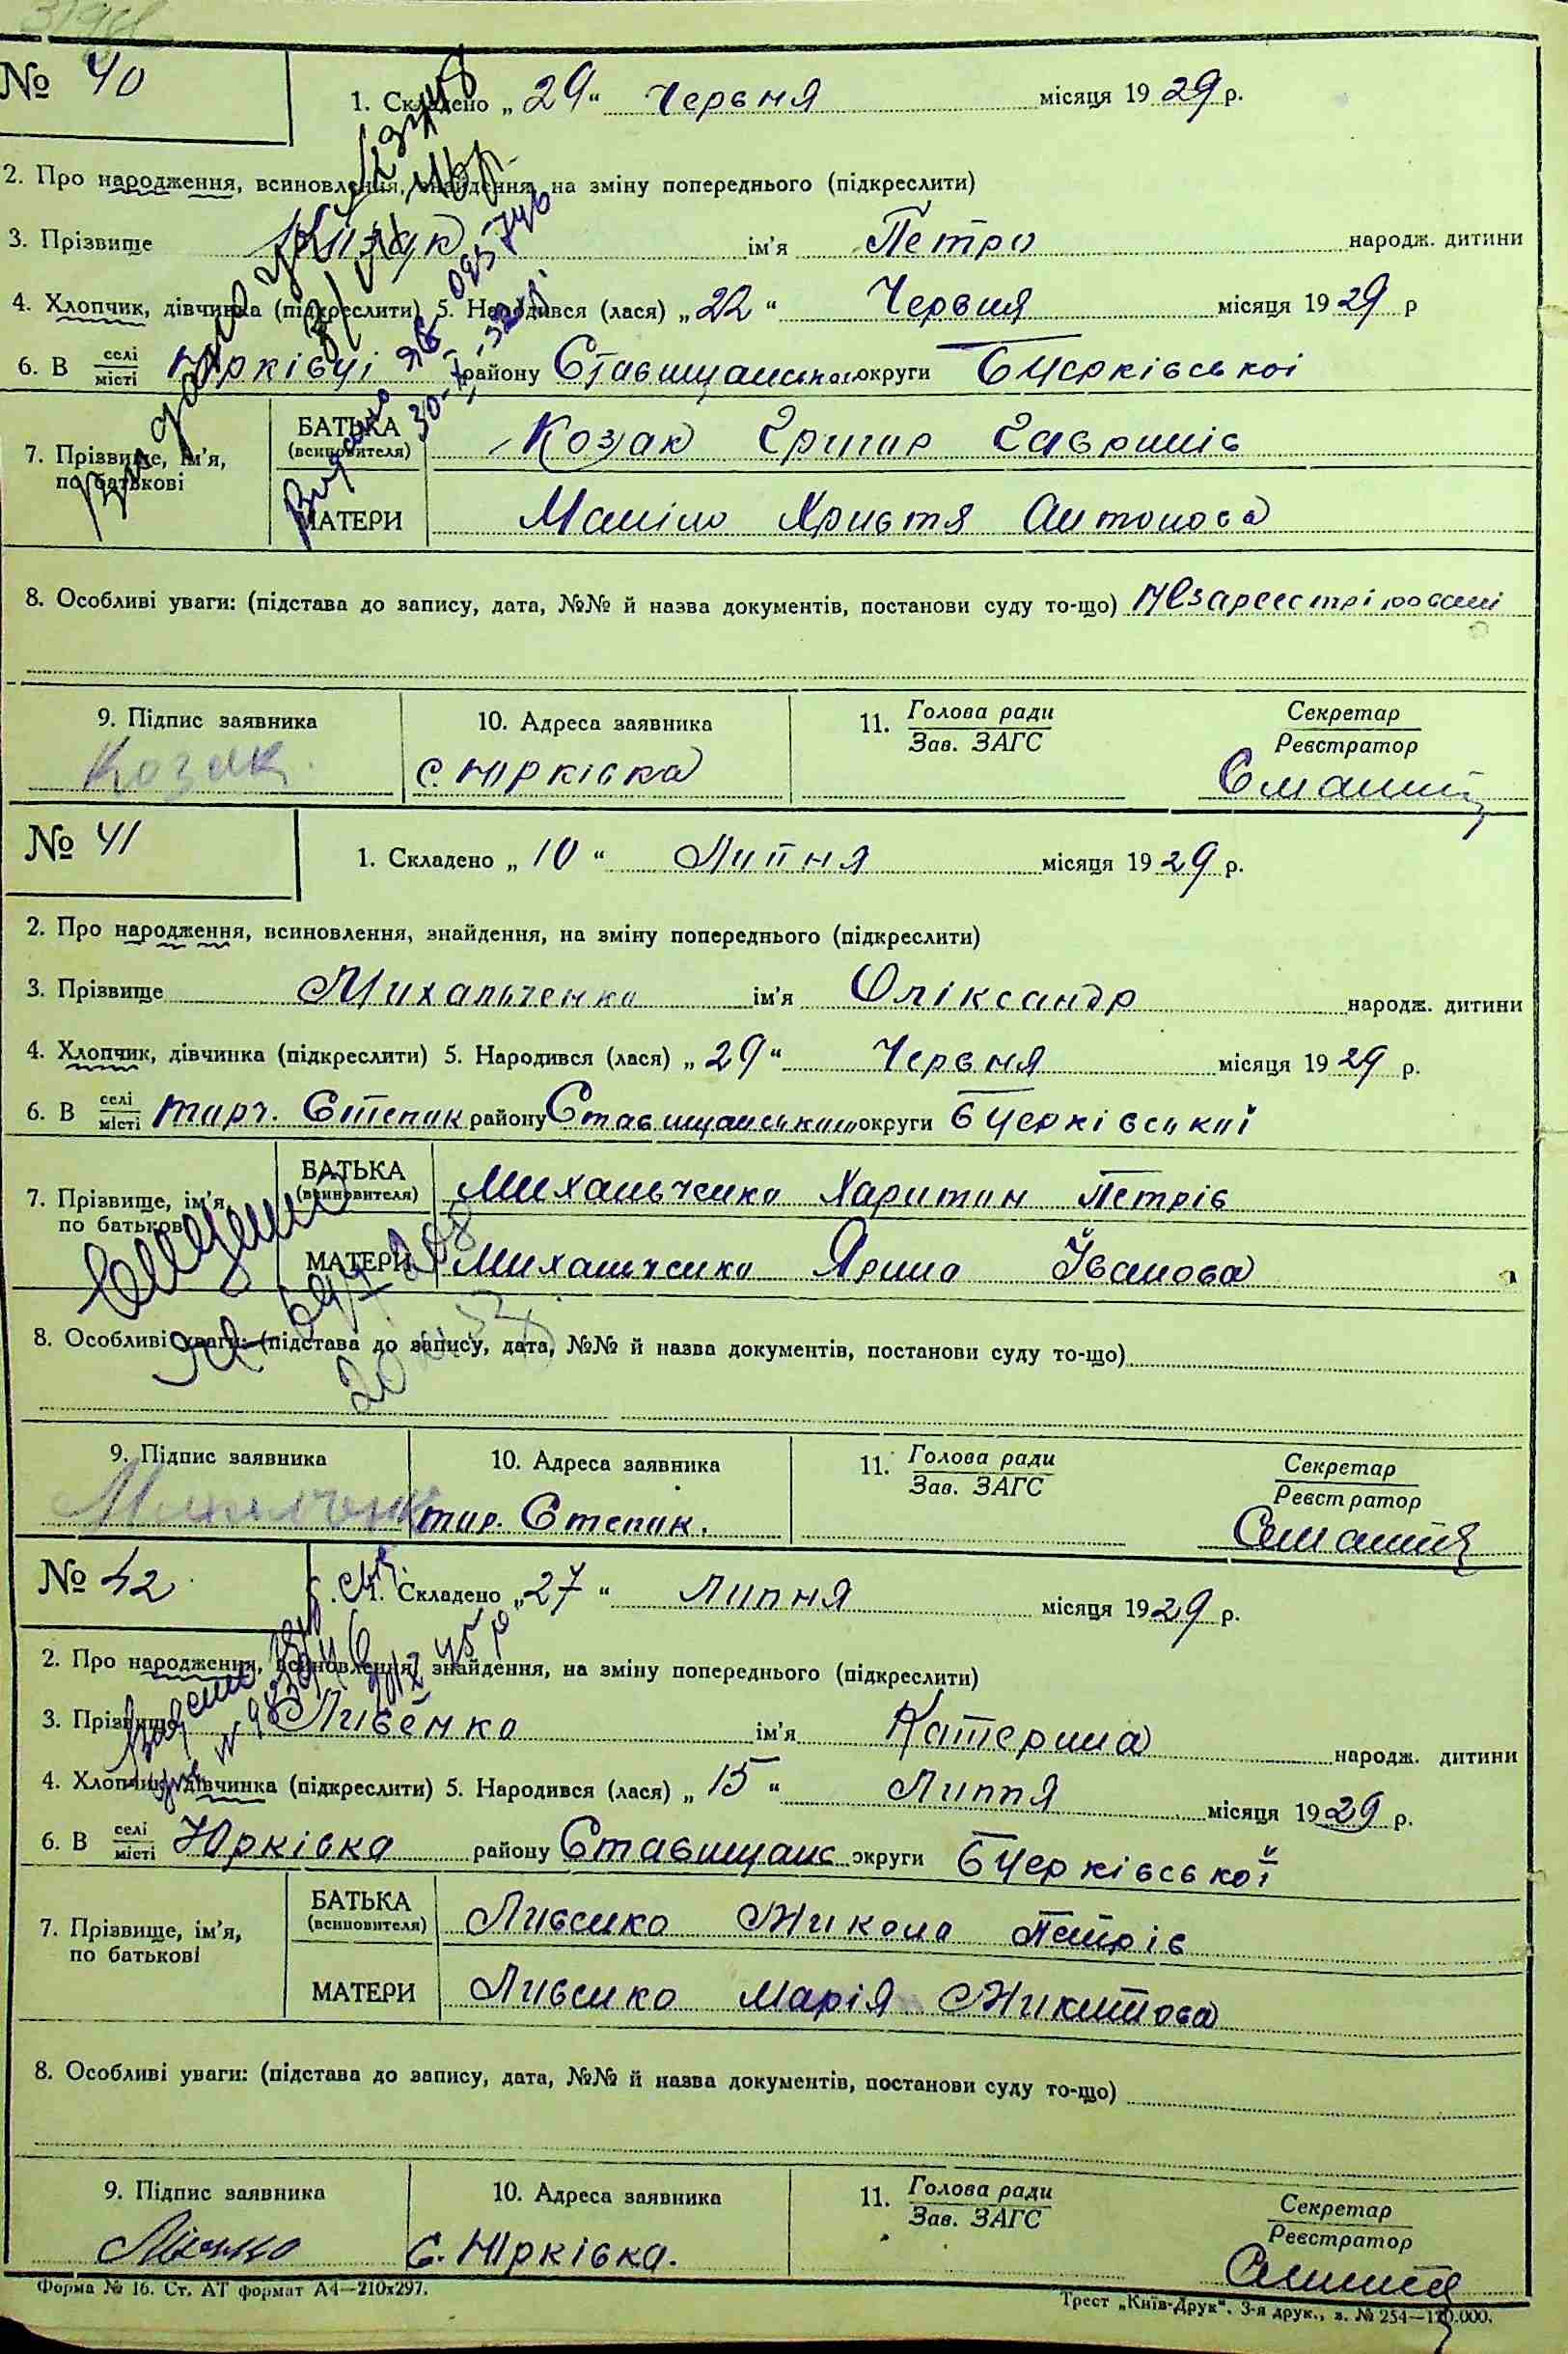 № 40
1. Складено „ 29 “ Червня місяця 19 29 р.
2. Про народження, всиновлення, знайдення, на зміну попереднього (підкреслити)
3. Прізвище Козак ім'я Петро народж. дитини
4. Хлопчик, дівчинка (підкреслити) 5. Народився (лася) „ 22 “ Червня місяця 19 29 р
6. В селі/місті Юрківці району Ставищанського округи БЦерківськоі
7. Прізвище, ім'я, по батькові
БАТЬКА (всиновителя) Козак Григор Гаврилів
МАТЕРИ Христя Антонова
8. Особливі уваги: (підстава до запису, дата, №№ й назва документів, постанови суду то-що)
9. Підпис заявника 10. Адреса заявника 11. Голова ради/Зав. ЗАГС Секретар/Реєстратор
Козак с. Юрківка
№ 41
1. Складено „ 10 “ Липня місяця 19 29 р.
2. Про народження, всиновлення, знайдення, на зміну попереднього (підкреслити)
3. Прізвище Михальченко ім'я Оліксандр народж. дитини
4. Хлопчик, дівчинка (підкреслити) 5. Народився (лася) „ 29 “ Червня місяця 19 29 р.
6. В селі/місті району Ставищанського округи БЦерківської
7. Прізвище, ім'я, по батькові
БАТЬКА (всиновителя) Михальченко Харитон Петрів
МАТЕРИ Михальченко Ярина Їванова
8. Особливі уваги: (підстава до запису, дата, №№ й назва документів, постанови суду то-що)
9. Підпис заявника 10. Адреса заявника 11. Голова ради/Зав. ЗАГС Секретар/Реєстратор
№ 42
1. Складено „ 27 “ Липня місяця 19 29 р.
2. Про народження, всиновлення, знайдення, на зміну попереднього (підкреслити)
3. Прізвище Ливенко ім'я Катерина народж. дитини
4. Хлопчик, дівчинка (підкреслити) 5. Народився (лася) „ 15 “ Липня місяця 19 29 р.
6. В селі/місті Юрківка району Ставищанс округи БЦерківської
7. Прізвище, ім'я, по батькові
БАТЬКА (всиновителя) Ливенко Микола Петрів
МАТЕРИ Ливенко Марія Микитова
8. Особливі уваги: (підстава до запису, дата, №№ й назва документів, постанови суду то-що)
9. Підпис заявника 10. Адреса заявника 11. Голова ради/Зав. ЗАГС Секретар/Реєстратор
С. Юрківка.
Форма № 16. Ст. АТ формат А4—210х297.
Трест „Київ-Друк“. 3-я друк., з. № 254